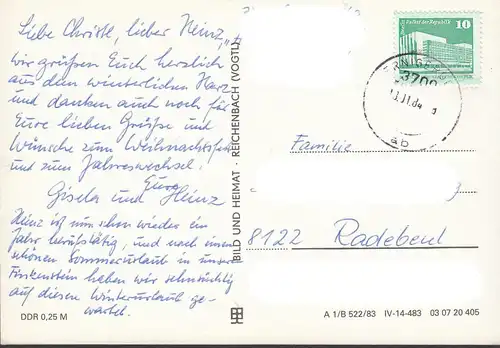 Liebe Christl, lieber Heinz,
wir grüßen Euch herzlich
aus dem winterlichen Harz
und danken auch noch für
Eure lieben Grüße und
Wünsche zum Weihnachtsfest
und zum Jahreswechsel!
Eure
Gisela und Heinz
Heinz ist nun schon wieder ein
Jahr berufstätig, und nach einem
schönen Sommerurlaub in unserer
Finkenstein haben wir sehnsüchtig
auf diesen Winterurlaub ge-
wartet.
DDR 0,25 M
BILD UND HEIMAT · REICHENBACH (VOGTL)
10
Palast der Republik
3700
ab
Familie
8122 Radebeul
A 1/B 522/83 IV-14-483 03 07 20 405